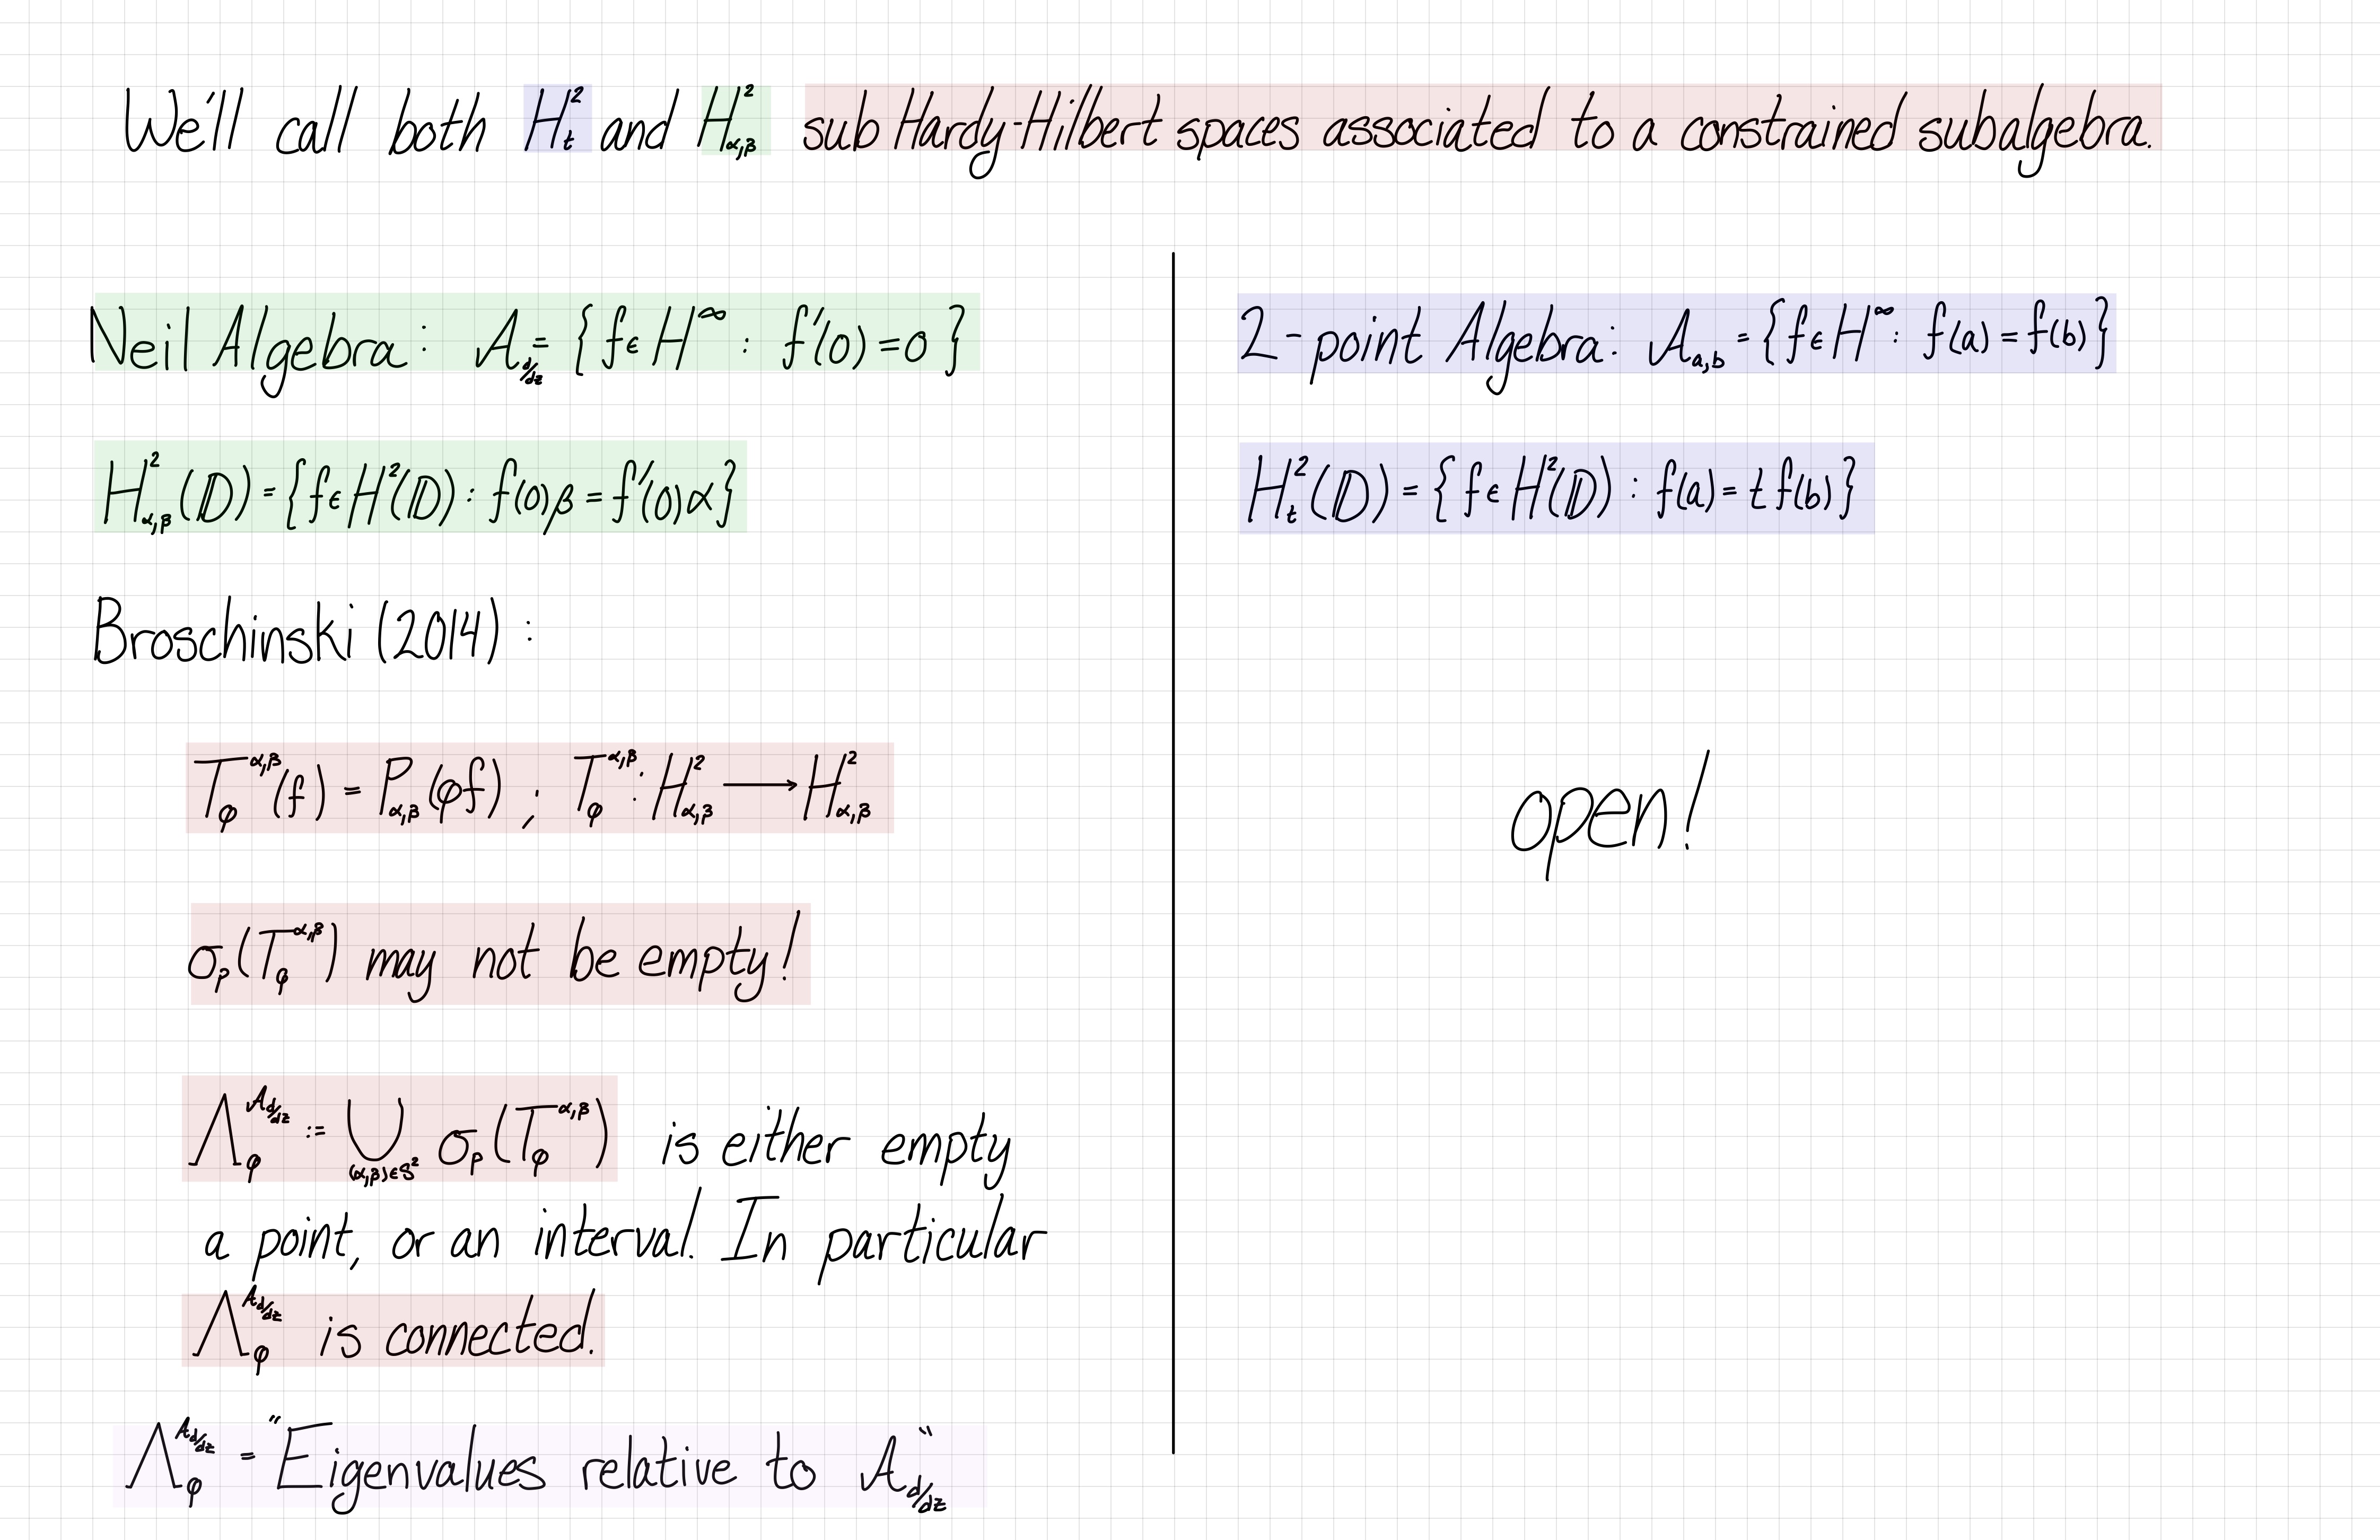 We'll call both H²_t and H²_{α,β} sub Hardy-Hilbert spaces associated to a constrained subalgebra.
Neil Algebra: A_{d/dz} = {f ∈ H^∞ : f'(0) = 0}
H²_{α,β}(𝔻) = {f ∈ H²(𝔻) : f(0)β = f'(0)α}
Broschinski (2014) :
T_φ^{α,β}(f) = P_{α,β}(φf) ; T_φ^{α,β} : H²_{α,β} ⟶ H²_{α,β}
σ_p(T_φ^{α,β}) may not be empty!
Λ_φ^{A_{d/dz}} := ⋃_{(α,β)∈S²} σ_p(T_φ^{α,β}) is either empty
a point, or an interval. In particular
Λ_φ^{A_{d/dz}} is connected.
Λ_φ^{A_{d/dz}} = "Eigenvalues relative to A_{d/dz}"
2-point Algebra: A_{a,b} = {f ∈ H^∞ : f(a) = f(b)}
H²_t(𝔻) = {f ∈ H²(𝔻) : f(a) = t f(b)}
open!